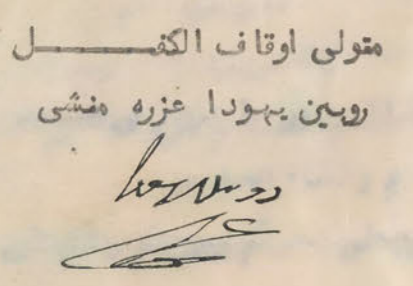 متولى اوقاف الكفـــــــل
روبين يهودا عزره منشى